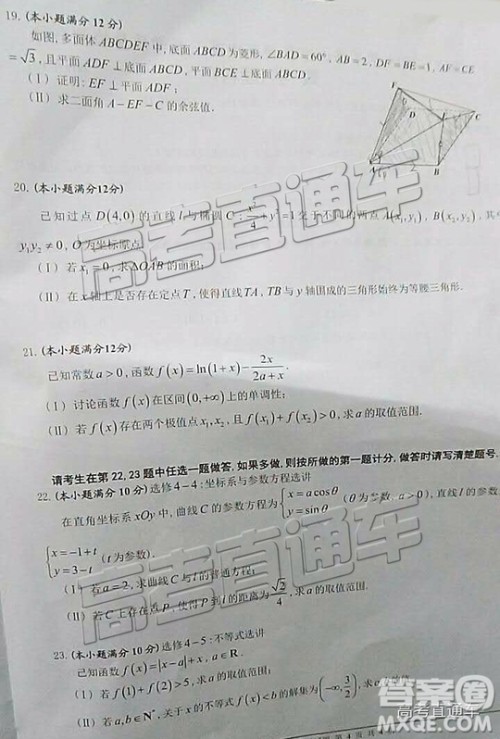 19. (本小题满分 12 分)
如图, 多面体 ABCDEF 中, 底面 ABCD 为菱形, ∠BAD=60°, AB=2, DF=BE=1, AF=CE
=√3, 且平面 ADF⊥底面 ABCD, 平面 BCE⊥底面 ABCD.
(I) 证明: EF⊥平面 ADF;
(II) 求二面角 A-EF-C 的余弦值.
F
D
E
C
A
B
20. (本小题满分12分)
已知过点 D(4,0) 的直线 l 与椭圆 C: x²/4+y²=1 交于不同的两点 A(x₁, y₁), B(x₂, y₂), 其中
y₁y₂≠0, O 为坐标原点.
(I) 若 x₁=0, 求△OAB 的面积;
(II) 在 x 轴上是否存在定点 T, 使得直线 TA, TB 与 y 轴围成的三角形始终为等腰三角形.
21. (本小题满分12分)
已知常数 a>0, 函数 f(x)=ln(1+x)-2x/(2a+x).
(I) 讨论函数 f(x) 在区间 (0,+∞) 上的单调性;
(II) 若 f(x) 存在两个极值点 x₁,x₂, 且 f(x₁)+f(x₂)>0, 求 a 的取值范围.
请考生在第 22, 23 题中任选一题做答, 如果多做, 则按所做的第一题计分, 做答时请写清楚题号.
22. (本小题满分 10 分) 选修 4-4: 坐标系与参数方程选讲
在直角坐标系 xOy 中, 曲线 C 的参数方程为 {x=a cosθ, y=sinθ (θ为参数, a>0), 直线 l 的参数方程为
{x=-1+t, y=3-t (t 为参数).
(I) 若 a=2, 求曲线 C 与 l 的普通方程;
(II) 若 C 上存在点 P, 使得 P 到 l 的距离为 √2/4, 求 a 的取值范围.
23. (本小题满分 10 分) 选修 4-5: 不等式选讲
已知函数 f(x)=|x-a|+x, a∈R.
(I) 若 f(1)+f(2)>5, 求 a 的取值范围.
(II) 若 a,b∈N*, 关于 x 的不等式 f(x)<b 的解集为 (-∞, 3/2),
高考直通车
高考直通车
高考直通车
高考直通车
答案圈